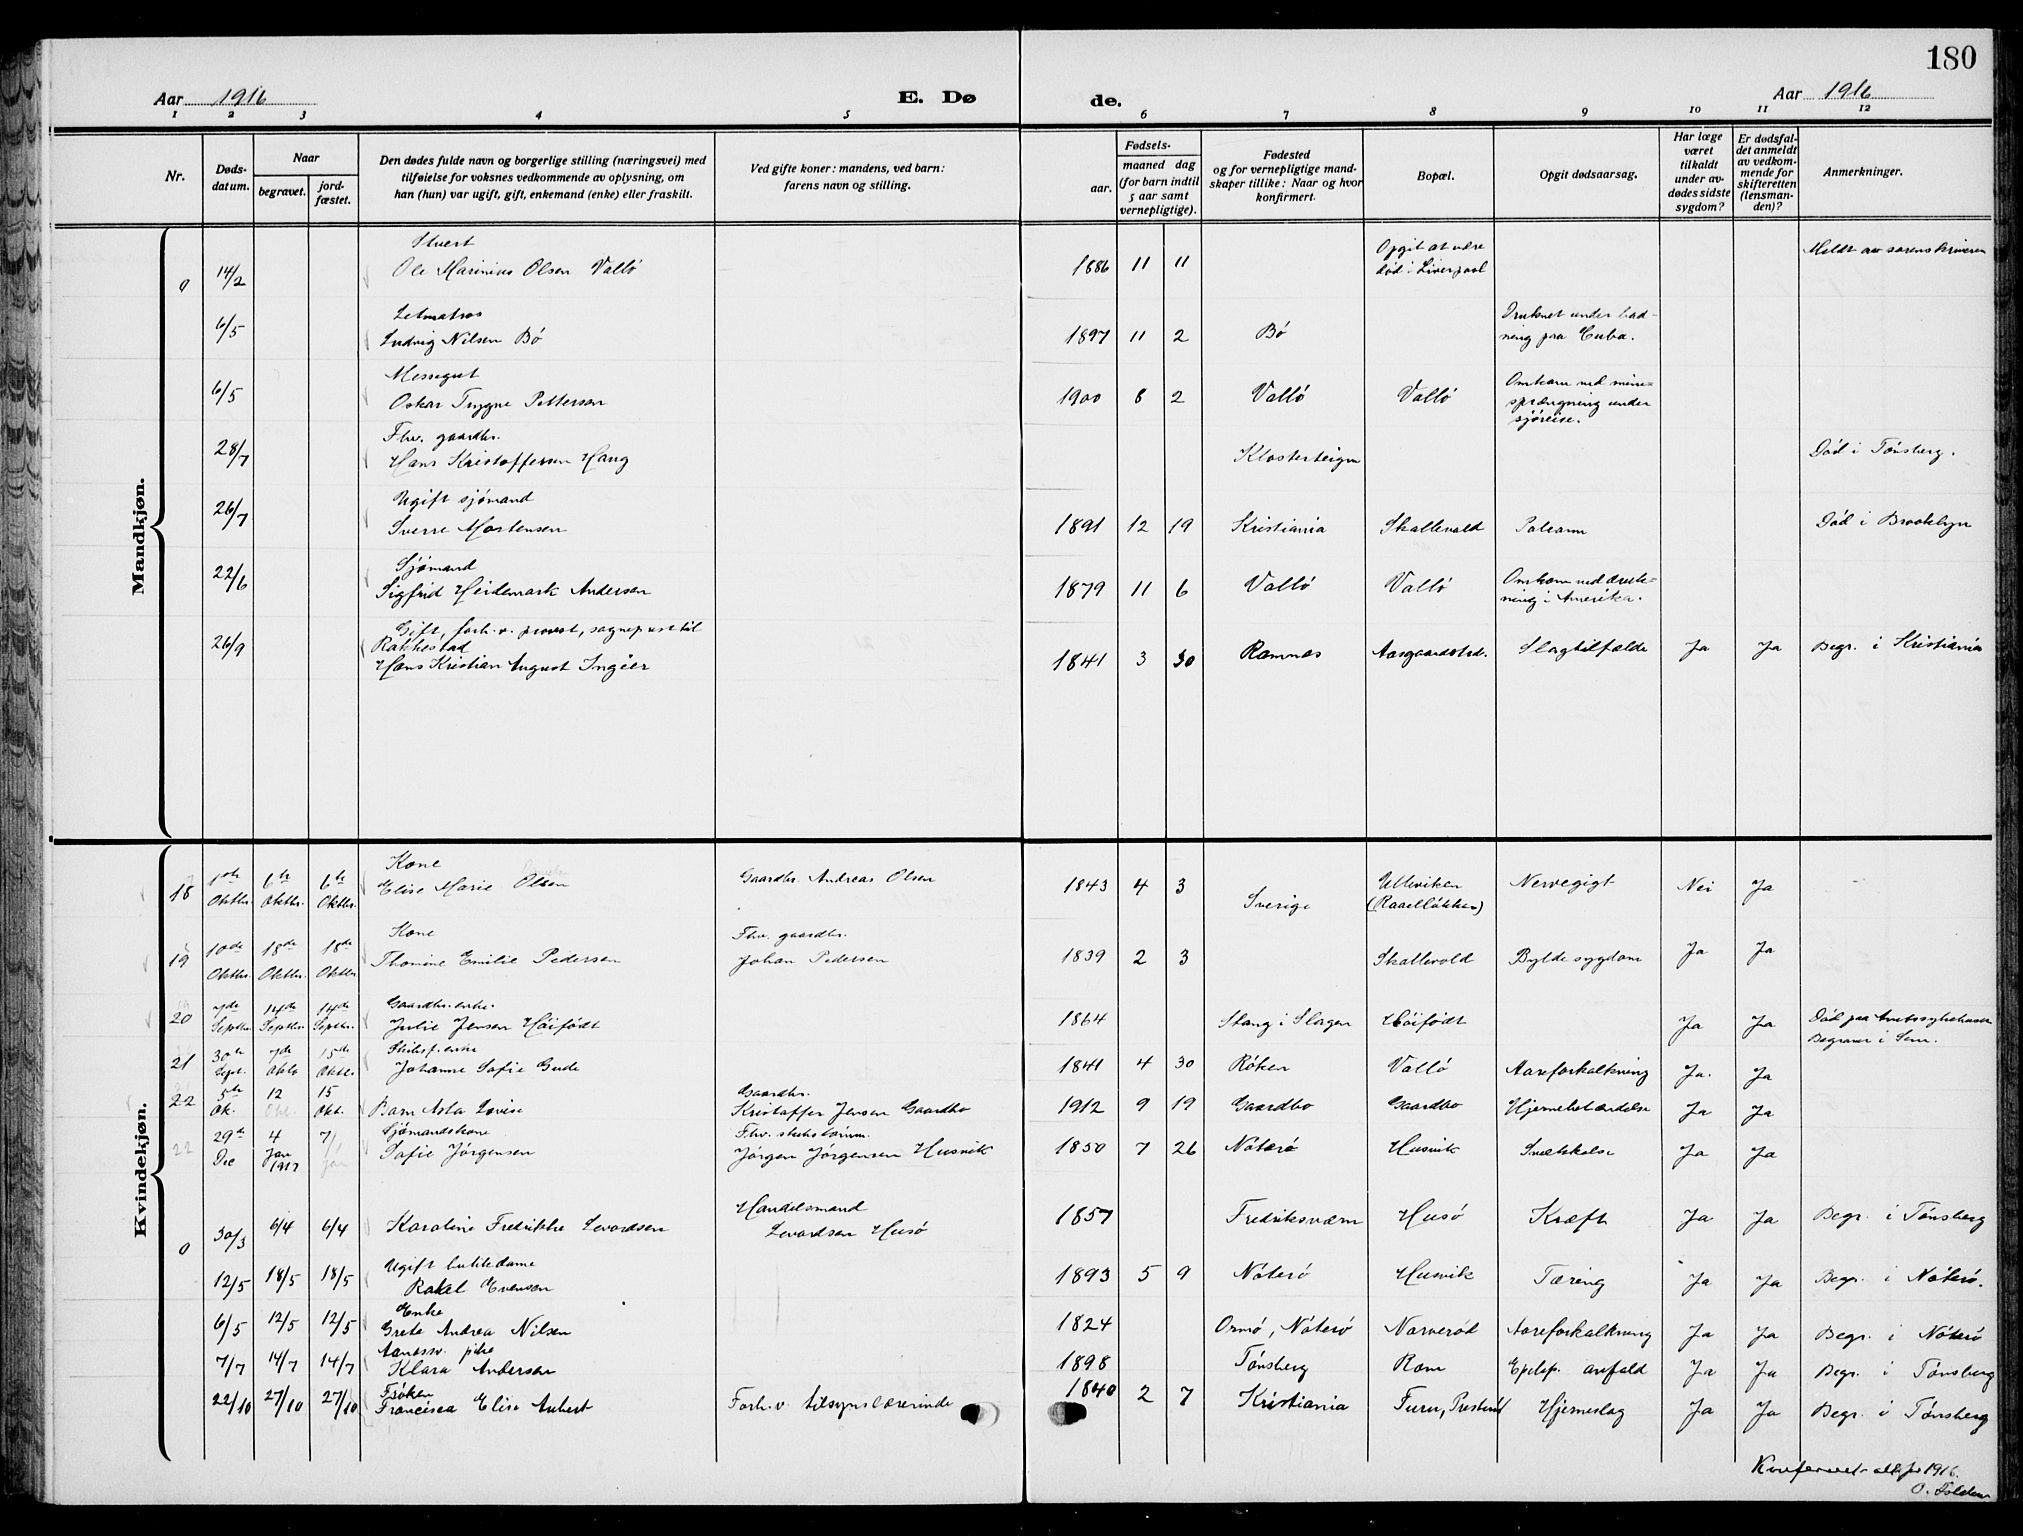 180
Aar 1916 E. Dø de. Aar 1916
1 2 3 4 5 6 7 8 9 10 11 12
Nr.
Døds-
datum.
Naar
begravet.
jord-
fæstet.
Den dødes fulde navn og borgerlige stilling (næringsvei) med
tilføielse for voksnes vedkommende av oplysning, om
han (hun) var ugift, gift, enkemand (enke) eller fraskilt.
Ved gifte koner: mandens, ved barn:
farens navn og stilling.
Fødsels-
aar.
maaned dag
(for barn indtil
5 aar samt
vernepligtige).
Fødested
og for vernepligtige mand-
skaper tillike: Naar og hvor
konfirmert.
Bopæl.
Opgit dødsaarsag.
Har læge
været
tilkaldt
under av-
dødes sidste
sygdom?
Er dødsfal-
det anmeldt
av vedkom-
mende for
skifteretten
(lensman-
den)?
Anmerkninger.
Mandkjøn.
Stuert Opgit at være Meldt av sorenskriveren
0 14/2 Ole Marinius Olsen Vallö 1886 11 11 død i Liverpool
Letmatros Druknet under bad-
6/5 Ludvig Nilsen Bö 1897 11 2 Bö ning paa Cuba.
Messegut Omkom ved mine-
6/5 Oskar Trygve Pettersen 1900 8 2 Vallö Vallö sprængning under
sjöreise.
Fhv. gaardbr.
28/7 Hans Kristoffersen Haug Klosterteigen Död i Tönsberg.
Ugift sjömand
26/7 Sverre Mortensen 1891 12 19 Kristiania Skallevold Död i Brooklyn
Sjömand Omkom ved
22/6 Sigfrid Heidemark Andersen 1879 11 6 Vallö Vallö i Amerika.
Gift, forh.v. provst, sognepræst til
Rakkestad
26/9 Hans Kristian August Ingier 1841 3 30 Ramnes Aasgaardstrd. Slagtilfælde Ja Ja Begr. i Kristiania
Kvindekjøn.
Kone
18 Oktbr. 6te Oktbr. 6te Oktbr. Elise Marie Olsen Gaardbr. Andreas Olsen 1843 4 3 Sverige Ulleviken Nervegigt Nei Ja
(Raaelløkken)
Kone Fhv. gaardbr.
19 10de Oktbr. 18de Oktbr. 18de Oktbr. Thomine Emilie Pedersen Johan Pedersen 1839 2 3 Skallevold Byldesygdom Ja Ja
Gaardbr.enke.
20 7de Septbr. 14de Septbr. 14de Septbr. Julie Jensen Höifödt 1864 Stang i Slagen Höifödt Ja Ja Död paa Amtssykehuset
Begravet i Sem.
Skibsf.enke
21 30te Sept. 7de Oktb 15de Oktbr. Johanne Sofie Gude 1841 4 30 Röken Vallö Aareforkalkning Ja. Ja
Gaardbr.
22 5te Ok. 12 Okt. 15 Okt. Barn Asta Lovise Kristoffer Jensen Gaardbo 1912 9 19 Gaardbo Gaardbo Hjernebetændelse Ja Ja
Sjömandskone Fhv. skibstömm.
22 29de Dec 4 Jan 1917 7/1 Jan Sofie Jörgensen Jörgen Jörgensen Husvik 1850 7 26 Nöterö Husvik Ja Ja
Handelsmand
0 30/3 6/4 6/4 Karoline Fredrikke Levordsen Levordsen Husö 1857 Fredriksværn Husö Kræft Ja Ja Begr. i Tönsberg
Ugift butikdame
12/5 18/5 18/5 Rakel Evensen 1893 5 9 Nöterö Husvik Tæring Ja Ja Begr. i Nöterö.
Enke
6/5 12/5 12/5 Grete Andrea Nilsen 1824 Ormö, Nöterö Narveröd Aareforkalkning Ja Ja Begr. i Nöterö
Aandssv. pike
7/7 14/7 14/7 Klara Andersen 1898 Tönsberg Rom Epilep. anfald Ja Ja Begr. i Tönsberg
Fröken
22/10 27/10 27/10 Francisca Elise Aubert Forh.v. tilsynslærerinde 1840 2 7 Kristiania Furu, Presterød Hjerneslag Ja Ja Begr. i Tönsberg
Konfereret alt for 1916.